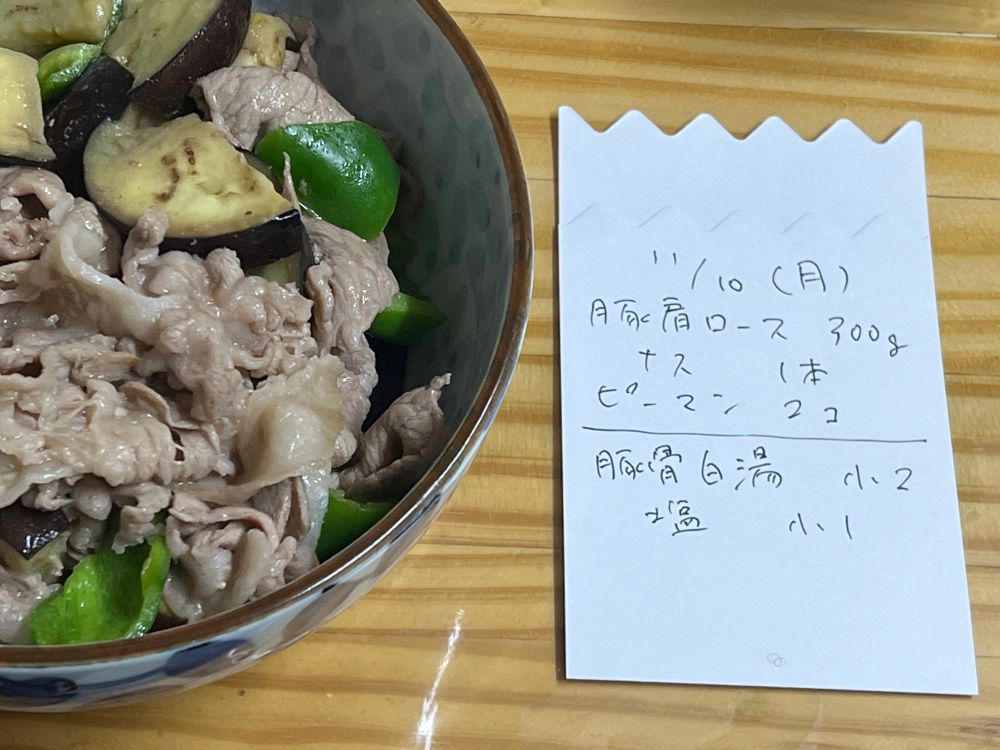 11/10 (月)
豚肩ロース 300g
ナス 1本
ピーマン 2コ
豚骨白湯 小2
塩 小1